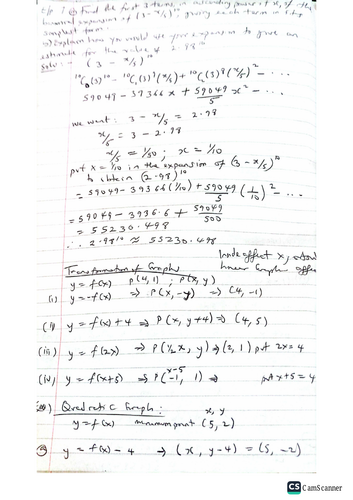 Find the first 3 terms, in ascending powers of x, of the
binomial expansion of (3 - x/5)¹⁰ giving each term in its
simplest form.
Explain how you would use your expansion to give an
estimate for the value of 2.98¹⁰
Solu:- (3 - x/5)¹⁰
¹⁰C₀(3)¹⁰ - ¹⁰C₁(3)⁹(x/5) + ¹⁰C₂(3)⁸(x/5)² - ...
59049 - 39366x + 59049/5 x² - ...
we want: 3 - x/5 = 2.98
x/5 = 3 - 2.98
x/5 = 1/50 ; x = 1/10
put x = 1/10 in the expansion of (3 - x/5)¹⁰
to obtain (2.98)¹⁰
= 59049 - 39366(1/10) + 59049/5 (1/10)² - ...
= 59049 - 3936.6 + 59049/500
= 55230.498
∴ 2.98¹⁰ ≈ 55230.498
Inside affect x,
Transformation of Graphs
y = f(x) P(4,1) ; P(x, y)
(i) y = -f(x) ⇒ P(x, -y) ⇒ (4, -1)
(ii) y = f(x) + 4 ⇒ P(x, y+4) ⇒ (4, 5)
(iii) y = f(2x) ⇒ P(½x, y) ⇒ (2, 1) put 2x = 4
x-5
(iv) y = f(x+5) ⇒ P(-1, 1) ⇒ put x+5 = 4
Quadratic Graph:- x, y
y = f(x) minimum point (5, 2)
y = f(x) - 4 ⇒ (x, y-4) = (5, -2)
CS CamScanner